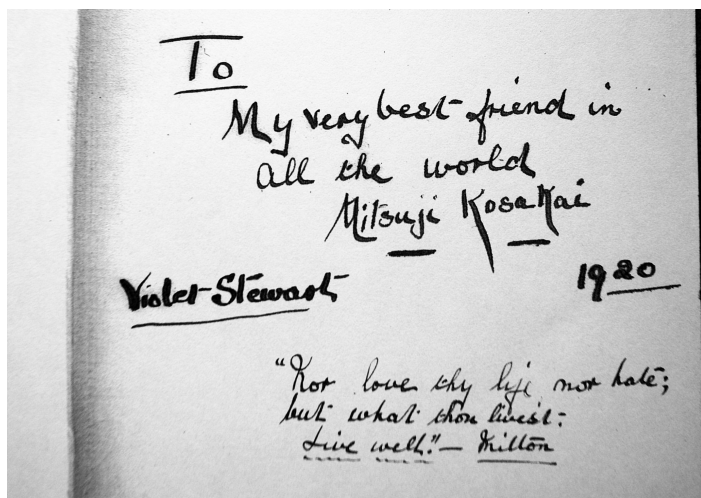 To
My very best friend in
all the world
Mitsuji Kosakai
Violet Stewart
1920
"Nor love thy life nor hate;
but what thou livest:
Live well." — Milton